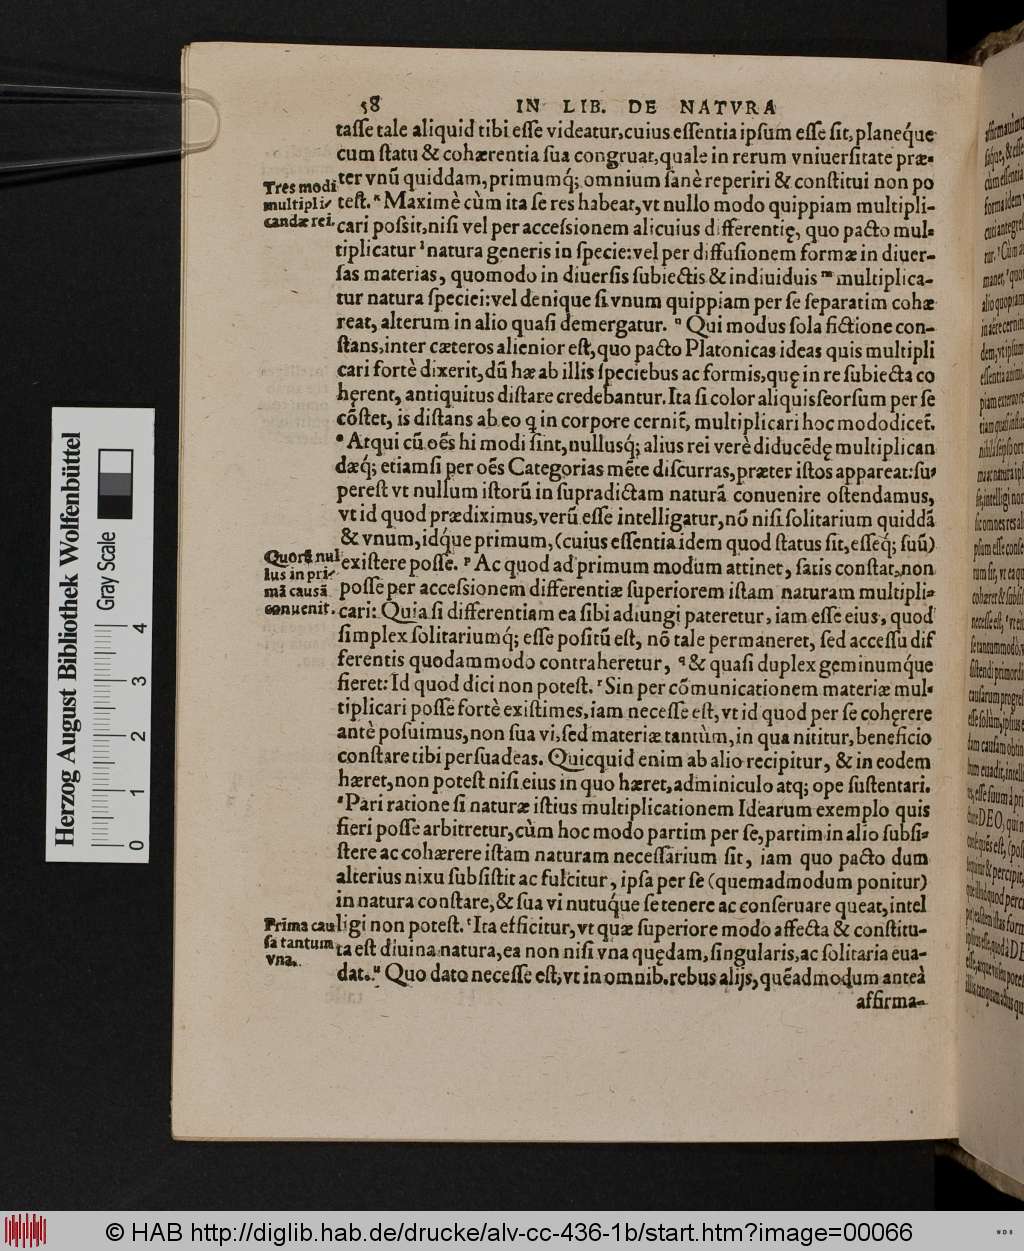 58 IN LIB. DE NATVRA
taſſe tale aliquid tibi eſſe videatur, cuius eſſentia ipſum eſſe ſit, planeq́ue
cum ſtatu & cohærentia ſua congruat, quale in rerum vniuerſitate præ-
ter vnū quiddam, primumq́; omnium ſanè reperiri & conſtitui non po
teſt. ᵏ Maximè cùm ita ſe res habeat, vt nullo modo quippiam multipli-
cari poſsit, niſi vel per acceſsionem alicuius differentię, quo pacto mul-
tiplicatur ˡ natura generis in ſpecie: vel per diffuſionem formæ in diuer-
ſas materias, quomodo in diuerſis ſubiectis & indiuiduis ᵐ multiplica-
tur natura ſpeciei: vel denique ſi vnum quippiam per ſe ſeparatim cohæ
reat, alterum in alio quaſi demergatur. ⁿ Qui modus ſola fictione con-
ſtans, inter cæteros alienior eſt, quo pacto Platonicas ideas quis multipli
cari fortè dixerit, dū hæ ab illis ſpeciebus ac formis, quę in re ſubiecta co
hęrent, antiquitus diſtare credebantur. Ita ſi color aliquis ſeorſum per ſe
cōſtet, is diſtans ab eo q in corpore cernit̄, multiplicari hoc modo dicet̄.
ᵒ Atqui cū oēs hi modi ſint, nullusq́; alius rei verè diducēdę multiplican
dæq́; etiamſi per oēs Categorias mēte diſcurras, præter iſtos appareat: ſu-
pereſt vt nullum iſtorū in ſupradictam naturā conuenire oſtendamus,
vt id quod prædiximus, verū eſſe intelligatur, nō niſi ſolitarium quiddā
& vnum, idq́ue primum, (cuius eſſentia idem quod ſtatus ſit, eſſeq́; ſuū)
exiſtere poſſe. ᵖ Ac quod ad primum modum attinet, ſatis conſtat, non
poſſe per acceſsionem differentiæ ſuperiorem iſtam naturam multipli-
cari: Quia ſi differentiam ea ſibi adiungi pateretur, iam eſſe eius, quod
ſimplex ſolitariumq́; eſſe poſitū eſt, nō tale permaneret, ſed acceſſu dif
ferentis quodammodo contraheretur, ᑫ & quaſi duplex geminumq́ue
fieret: Id quod dici non poteſt. ʳ Sin per cōmunicationem materiæ mul-
tiplicari poſſe fortè exiſtimes, iam neceſſe eſt, vt id quod per ſe cohęrere
antè poſuimus, non ſua vi, ſed materiæ tantùm, in qua nititur, beneficio
conſtare tibi perſuadeas. Quicquid enim ab alio recipitur, & in eodem
hæret, non poteſt niſi eius in quo hæret, adminiculo atq; ope ſuſtentari.
ˢ Pari ratione ſi naturæ iſtius multiplicationem Idearum exemplo quis
fieri poſſe arbitretur, cùm hoc modo partim per ſe, partim in alio ſubſi-
ſtere ac cohærere iſtam naturam neceſſarium ſit, iam quo pacto dum
alterius nixu ſubſiſtit ac fulcitur, ipſa per ſe (quemadmodum ponitur)
in natura conſtare, & ſua vi nutuq́ue ſe tenere ac conſeruare queat, intel
ligi non poteſt. ᵗ Ita efficitur, vt quæ ſuperiore modo affecta & conſtitu-
ta eſt diuina natura, ea non niſi vna quędam, ſingularis, ac ſolitaria eua-
dat. ᵘ Quo dato neceſſe eſt, vt in omnib. rebus alijs, quēadmodum anteà
affirma-
Tres modi
multipli-
candæ rei.
Quorū nul
lus in pri-
mā causā
conuenit.
Prima cau
ſa tantum
vna.
Herzog August Bibliothek Wolfenbüttel
Gray Scale
0 1 2 3 4
© HAB http://diglib.hab.de/drucke/alv-cc-436-1b/start.htm?image=00066